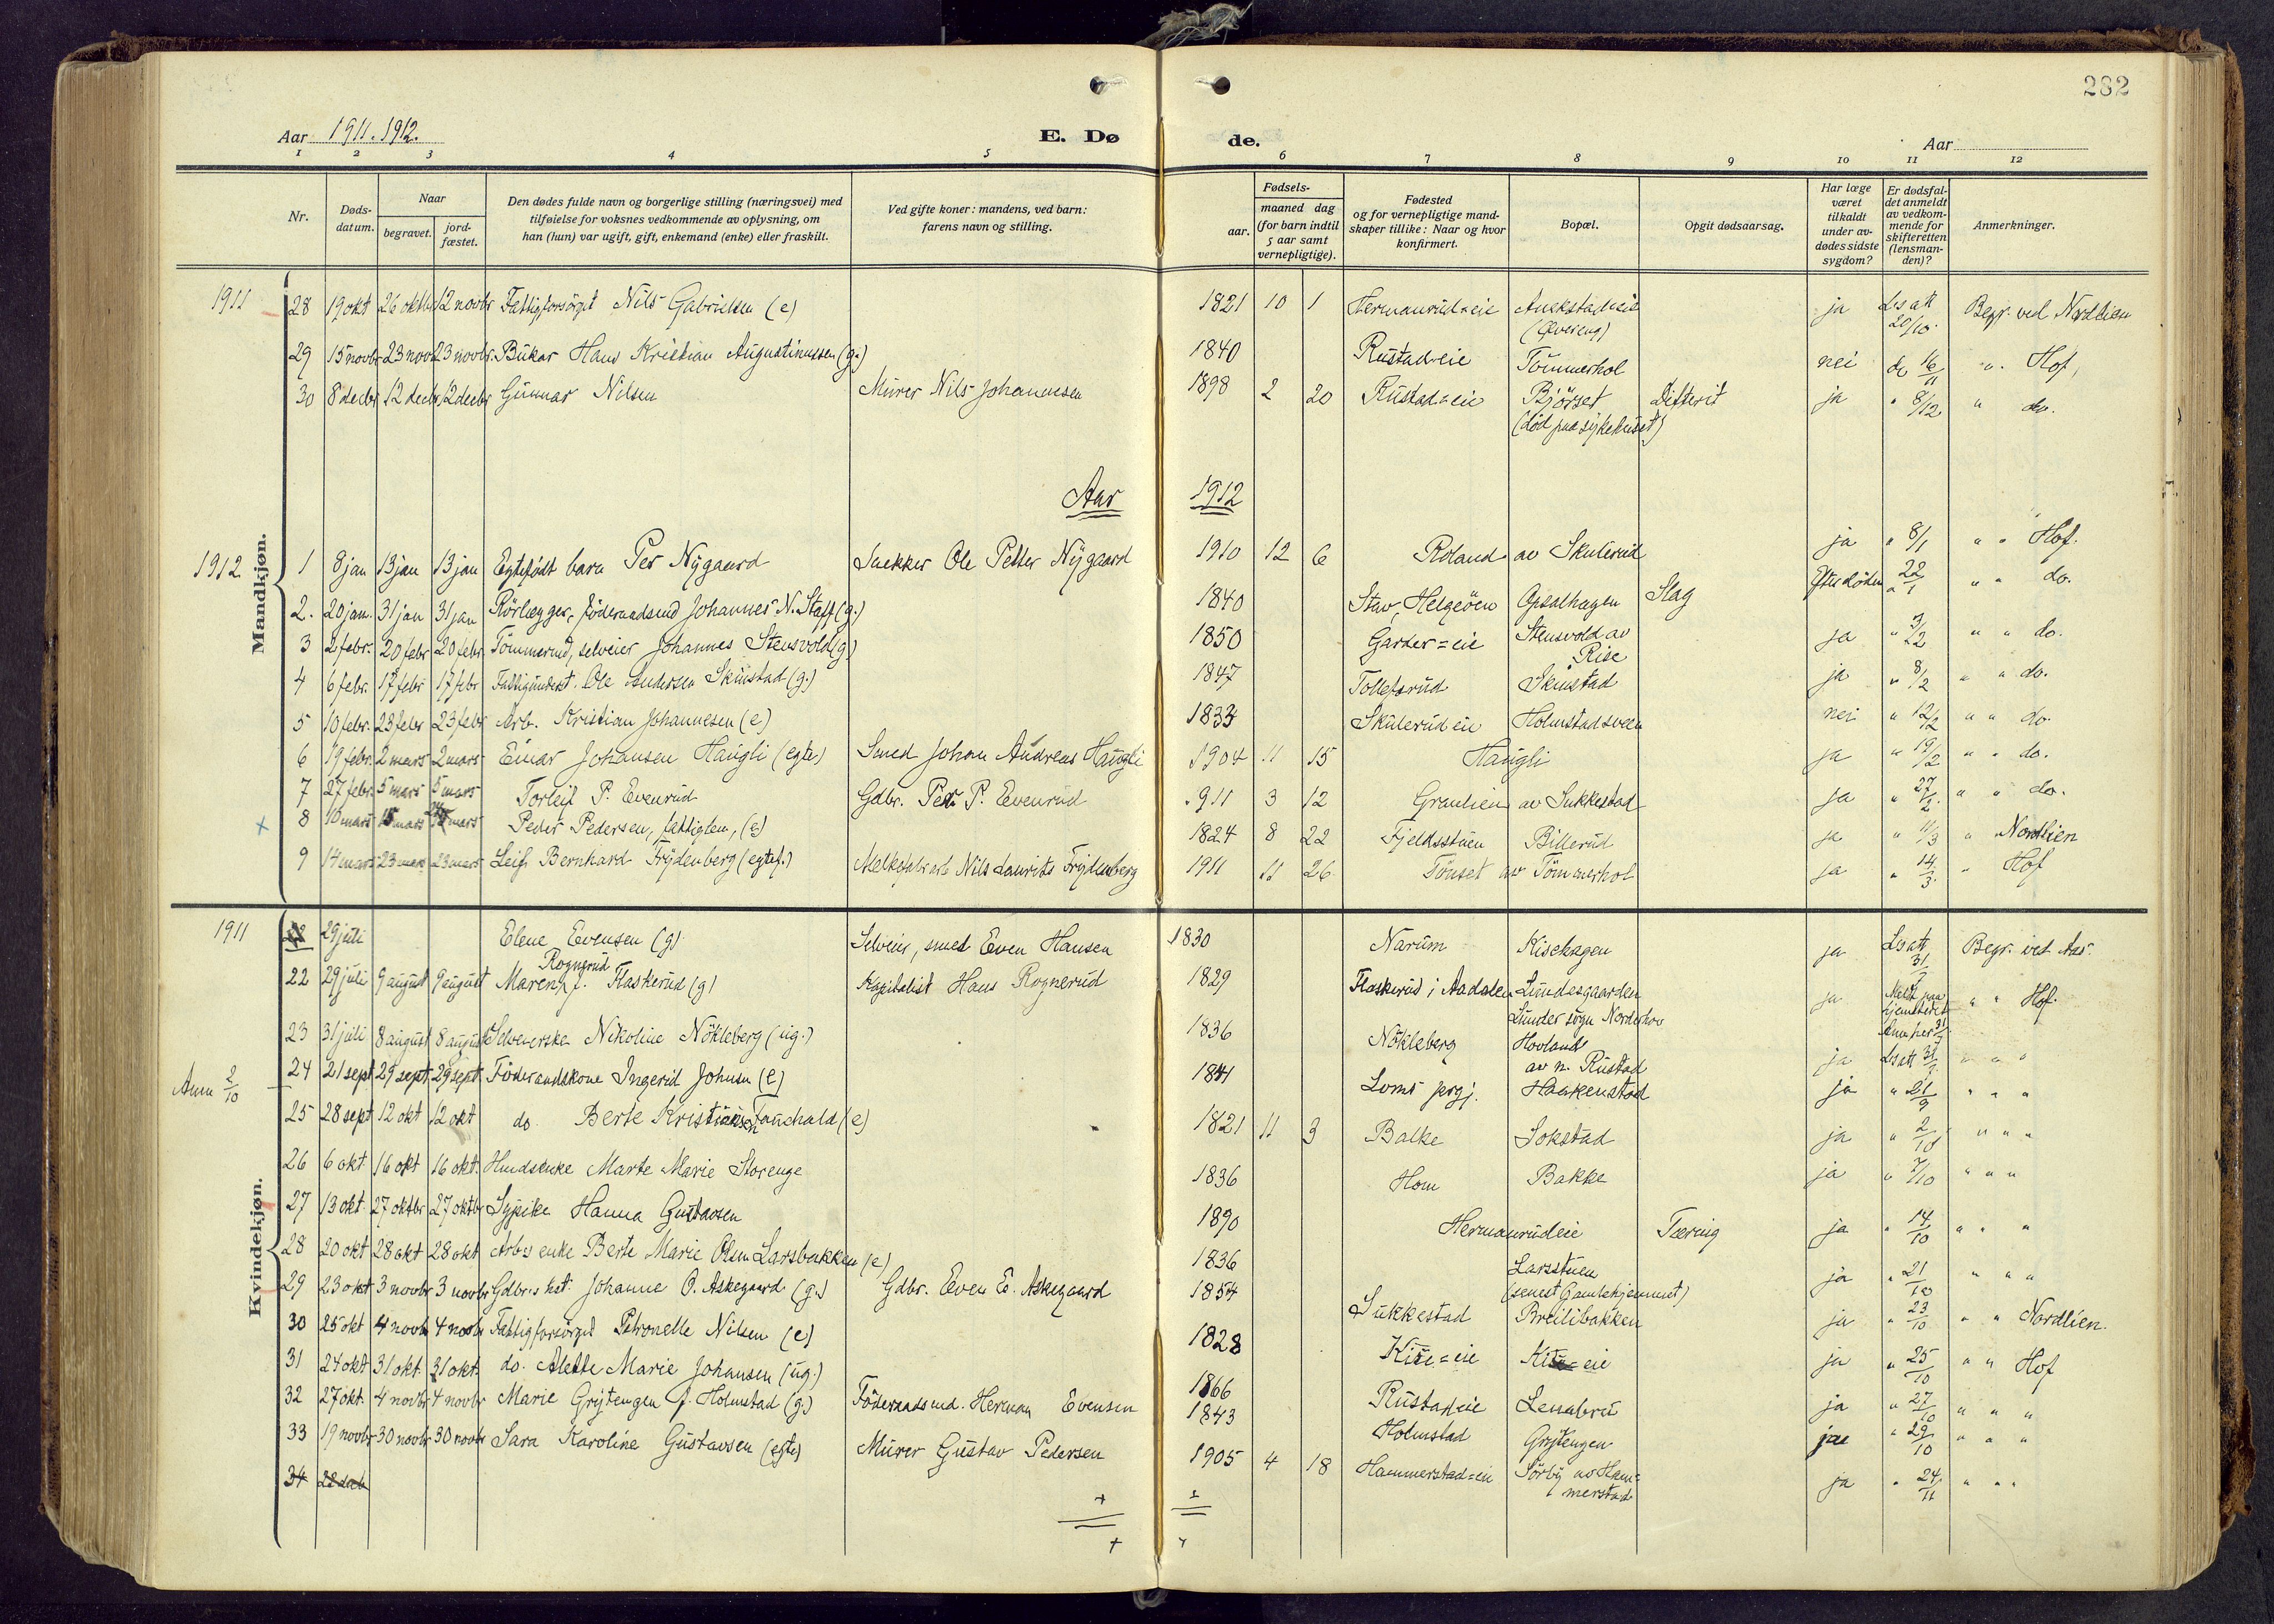 282
Aar 1911. 1912.
E. Dø
de.
Aar
1 2 3 4 5 6 7 8 9 10 11 12
Nr.
Døds-
datum.
Naar
begravet.
jord-
fæstet.
Den dødes fulde navn og borgerlige stilling (næringsvei) med
tilføielse for voksnes vedkommende av oplysning, om
han (hun) var ugift, gift, enkemand (enke) eller fraskilt.
Ved gifte koner: mandens, ved barn:
farens navn og stilling.
Fødsels-
aar.
maaned dag
(for barn indtil
5 aar samt
vernepligtige).
Fødested
og for vernepligtige mand-
skaper tillike: Naar og hvor
konfirmert.
Bopæl.
Opgit dødsaarsag.
Har læge
været
tilkaldt
under av-
dødes sidste
sygdom?
Er dødsfal-
det anmeldt
av vedkom-
mende for
skifteretten
(lensman-
den)?
Anmerkninger.
Mandkjøn.
1911 28 19 okt 26 oktbr 12 novbr Fattigforsörget Nils Gabrielsen (e) 1821 10 1 Hermanrud=eie Anekstad=eie (Övereng) ja Ls att 20/10. Begr. ved Nordlien
29 15 novbr 23 novb 23 novbr. Bukar Hans Kristian Augustinussen (g.) 1840 Rustad=eie Tömmerhol nei do 16/11 " Hof,
30 8 decbr 12 decbr 12 decbr Gunnar Nilsen Murer Nils Johannesen 1898 2 20 Rustad=eie Björset (död paa sykehuset) Difterit ja " 8/12 " do.
Aar 1912
1912 1 8 jan 13 jan 13 jan Egtefödt barn Per Nygaard Snekker Ole Petter Nygaard 1910 12 6 Roland av Skulerud ja " 8/1 " " Hof.
2. 20 jan. 31 jan 31 jan Rörlægger, föderaadsmd Johannes N. Staff (g.) 1840 Stav, Helgeöen Opsalhagen Slag Efter döden 22/1 " " do.
3 2 febr. 20 febr 20 febr. Tömmermd, selveier Johannes Stensvold (g) 1850 Garder=eie Stensvold av Rise ja " 3/2 " " do.
4 6 febr. 17 febr 17 febr Fattigunderst. Ole Andersen Skiustad (g.) 1847 Tollefsrud Skiustad ja " 8/2 " " do.
5 10 febr. 23 febr 23 febr Arb. Kristian Johannesen (e) 1833 Skulerud eie Holmstadsveen nei " 12/2 " " do.
6 19 febr. 2 mars 2 mars Einar Johansen Haugli (egte) Smed Johan Andreas Haugli 1904 11 15 Haugli ja " 19/2 " " do.
7 27 febr. 5 mars 5 mars Torleif P. Evenrud Gdbr. Peder P. Evenrud 1911 3 12 Granlien av Sukkestad ja " 27/2. " " do.
8 10 mars 15 mars 24 mars Peder Pedersen, fattiglem, (e) 1824 8 22 Fjeldsstuen Billerud ja " 11/3 " Nordlien
9 14 mars 23 mars 23 mars Leif Bernhard Frydenberg (egtef.) Nils Laurits Frydenberg 1911 11 26 Tönset av Tömmerhol ja " 14/3. " Hof
Kvindekjøn.
1911 22 29 juli Elene Evensen (g) Selveier, smed Even Hansen 1830 Narum Kisehagen ja Ls att 31/7 Begr. ved Aas.
22 29 juli 9 august 9 august Maren Rognerud f. Flaskerud (g) Kapitalist Hans Rognerud 1829 Flaskerud i Aadalen Lundesgaarden Lunder sogn Norderhov ja Meldt paa hjemstedet " " Hof.
23 31 juli 8 august 8 august Selveierske Nikoline Nökleberg (ug.) 1836 Nökleberg Hovland av n. Rustad ja Ls att 31/7 " " "
Anm 2/10 24 21 sept 29 sept 29 sept. Föderaadskone Ingerid Johnsen (e) 1841 Loms prgj. Haakenstad ja " 21/9 " " "
25 28 sept 12 okt 12 okt do Berte Kristiansen Fauchald (e) 1821 11 3 Balke Sokstad ja " 2/10 " " "
26 6 okt 16 okt 16 okt. Husmdsenke Marte Marie Storenge 1836 Hom Bakke ja " 7/10 " " "
27 13 okt. 27 oktbr 27 oktbr Sypike Hanna Gustavsen 1890 Hermanrudeie Tæring ja " 14/10 " " "
28 20 okt 28 okt 28 okt Arbs enke Berte Marie Olsen Larsbakken (e) 1836 Larsstuen (senest Gamlehjemmet) ja " 21/10 " " "
29 23 okt 3 novbr 3 novbr Gdbr.s kst. Johanne O. Askegaard (g.) Gdbr. Even E. Askegaard 1854 Sukkestad Breilibakken ja " 23/10 " " Nordlien.
30 25 okt 4 novbr 4 novbr Fattigforsörget Petronelle Nilsen (e) 1828 Kise=eie Kise=eie ja " 25/10 " " Hof
31 24 okt 31 okt. 31 okt. do. Alette Marie Johansen (ug.) 1866 Rustadeie Lenabru ja " 27/10 " " "
32 27 okt. 4 novbr 4 novbr Marie Grytengen f. Holmstad (g.) Föderaadsmd. Herman Evensen 1843 Holmstad Grytengen ja " 29/10 " " "
33 19 novbr 30 novbr 30 novbr Sara Karoline Gustavsen (egte) Murer Gustav Pedersen 1905 4 18 Hammerstad=eie Sörby av Ham=merstad ja " 24/11 " " "
34 22 deb